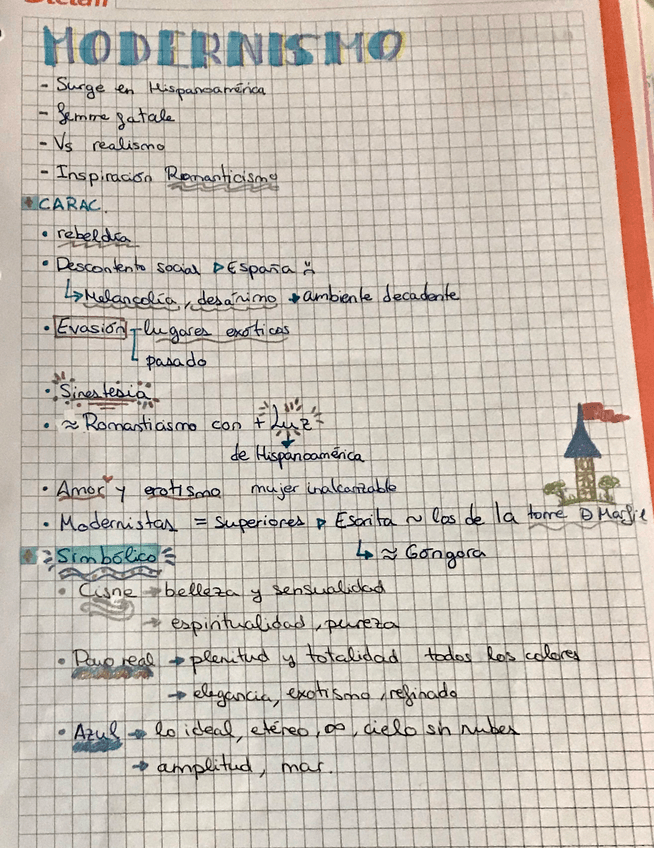 MODERNISMO
- Surge en Hispanoamérica
- femme fatale
- Vs realismo
- Inspiración Romanticismo
+ CARAC.
• rebeldía
• Descontento social ▷ España :(
↳ Melancolía, desánimo → ambiente decadente
• Evasión lugares exóticos
pasado
• Sinestesia
• ≈ Romanticismo con + Luz
de Hispanoamérica
• Amor y erotismo mujer inalcanzable
• Modernistas = superiores ▷ Escrita ~ los de la torre D Marfil
+ Simbólico ↳ ≈ Góngora
• Cisne → belleza y sensualidad
→ espiritualidad, pureza
• Pavo real → plenitud y totalidad todos los colores
→ elegancia, exotismo, refinado
• Azul → lo ideal, etéreo, ∞, cielo sin nubes
→ amplitud, mar.